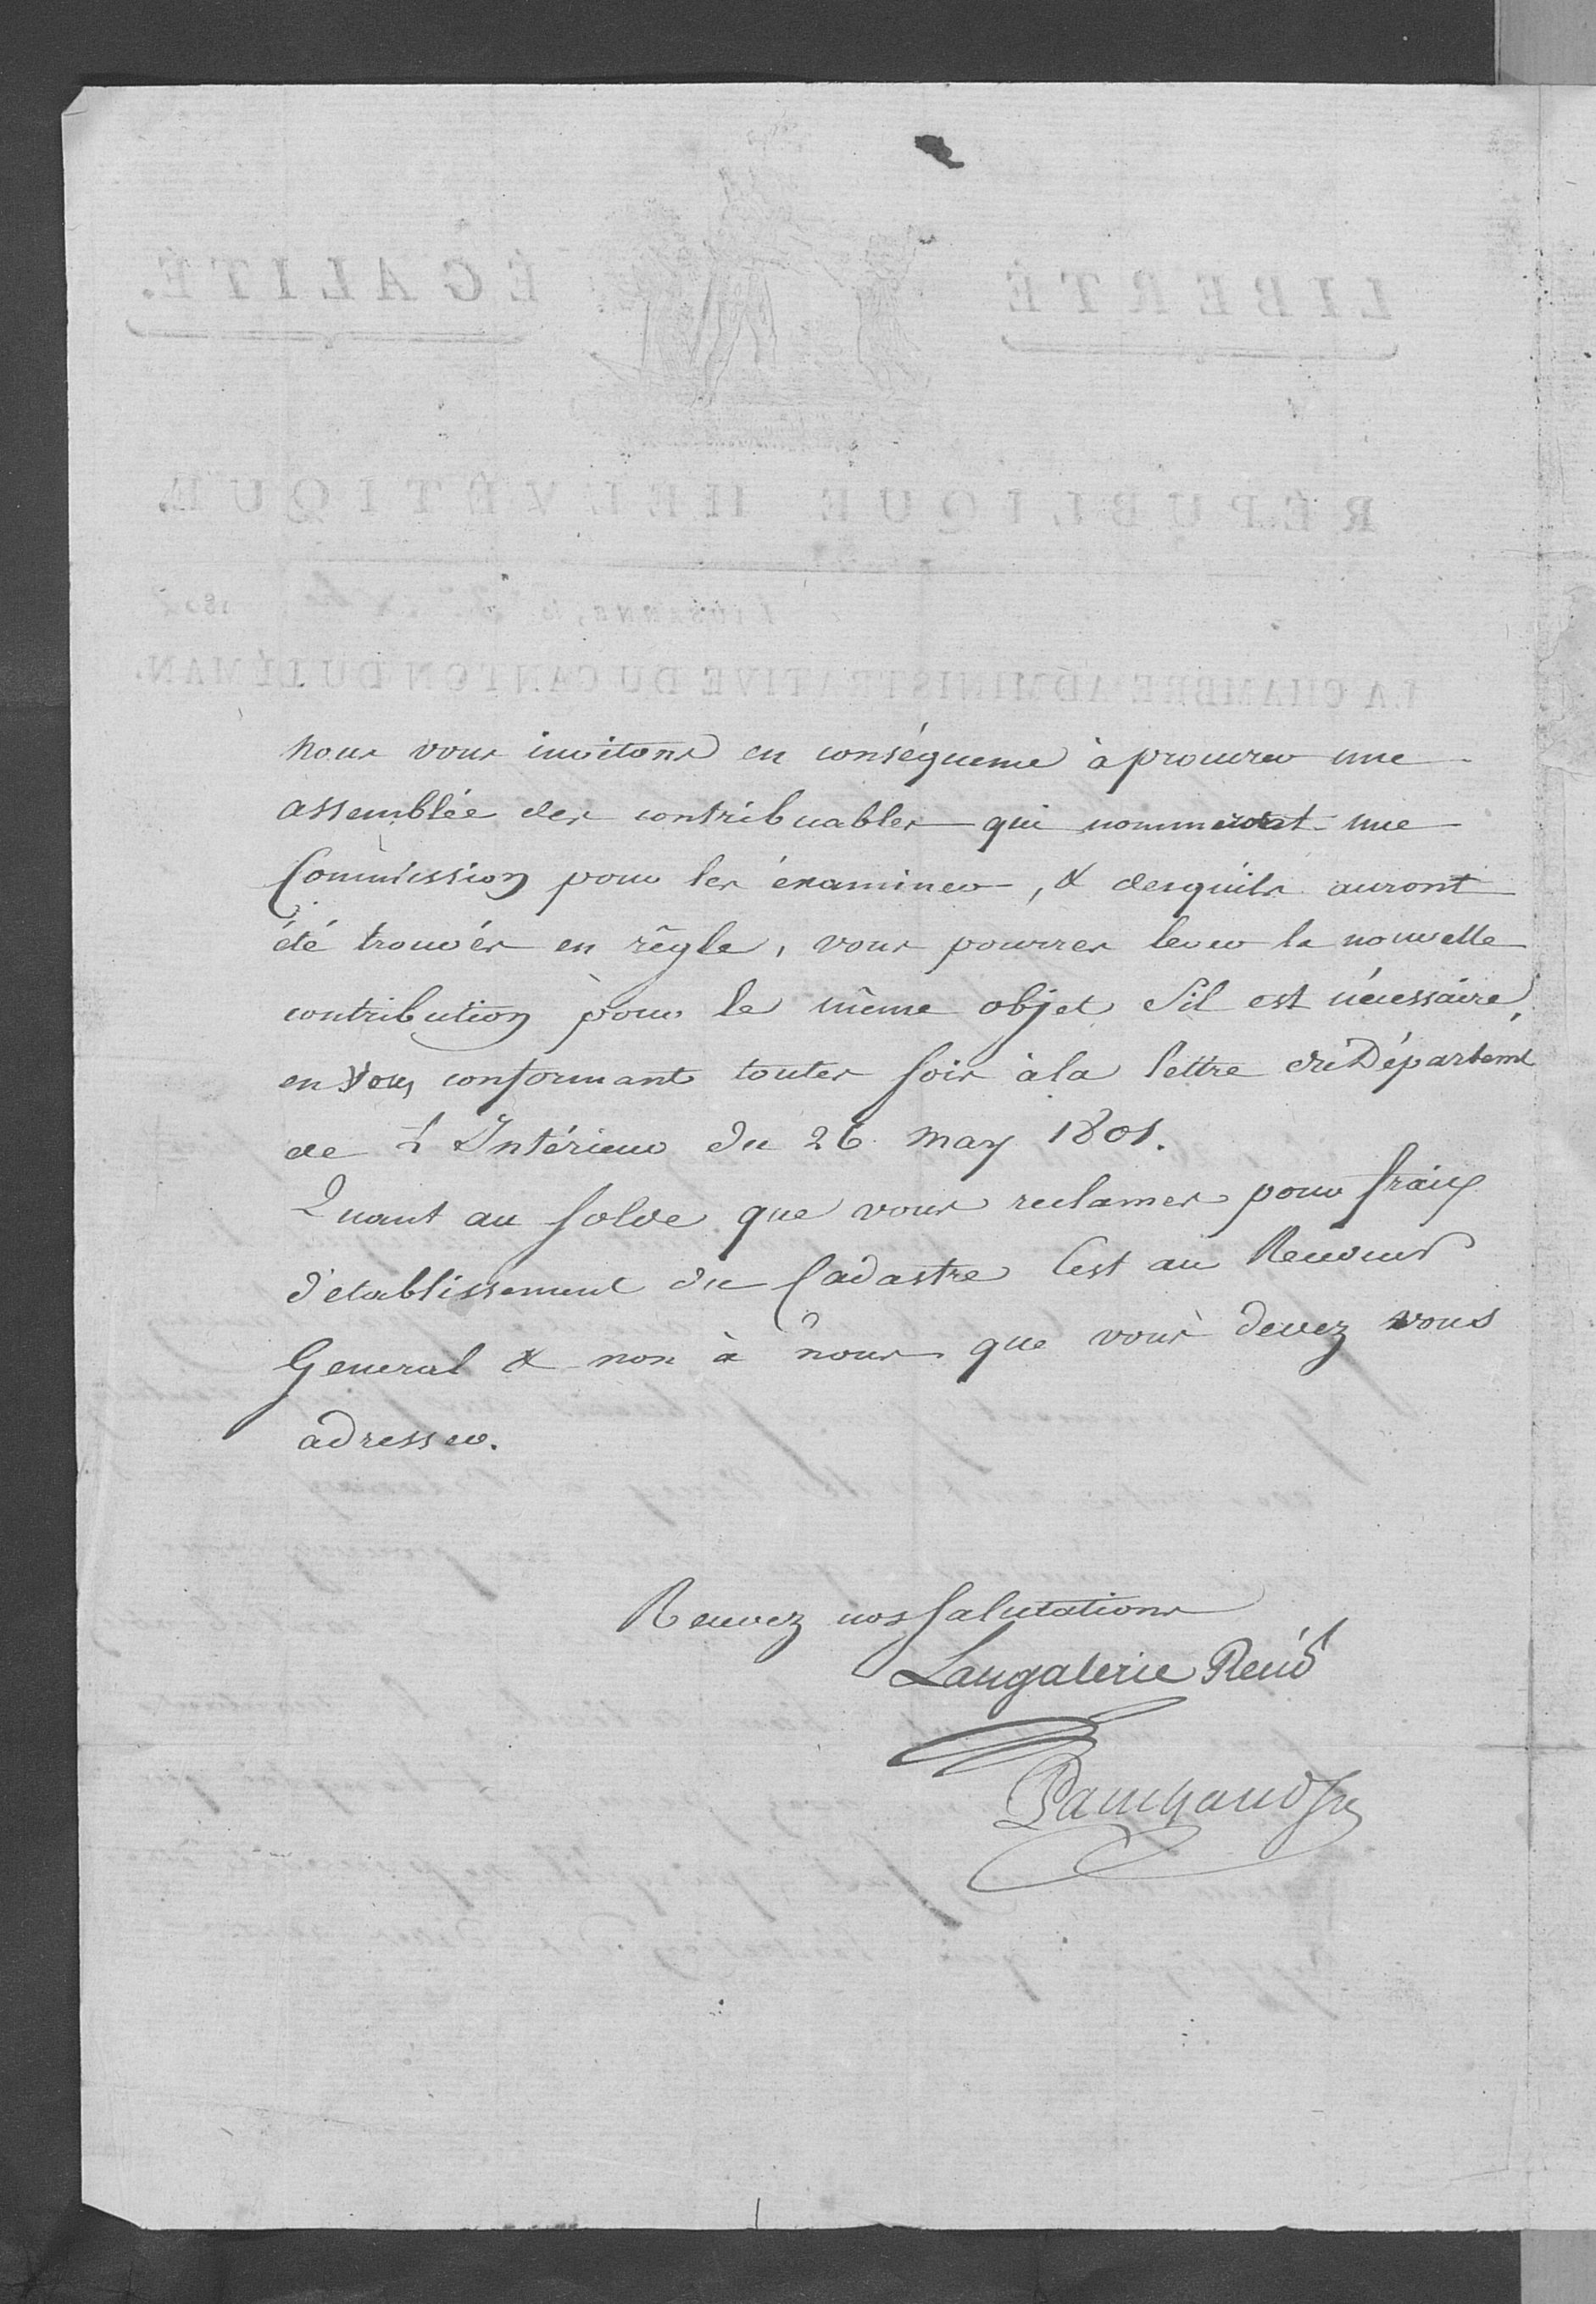 Nous vous invitons en conséquence à procurer une
assemblée des contribuables qui nommeront une
Commission pour les éxaminer, & desquils auront
été trouvés en rêgle, vous pourres lever la nouvelle
contribution pour le même objet Sil est nécessaire,
en vous conformant toutes fois à la lettre du Départemt
de L'Intérieur du 26 may 1801.
Quant au solde que vous reclames pour fraix
d'etablissement du Cadastre C'est au Receveur
General & non à nous que vous devez vous
adresser.
Recevez nos Salutations
Langalerie Presid
Panchaud Sre